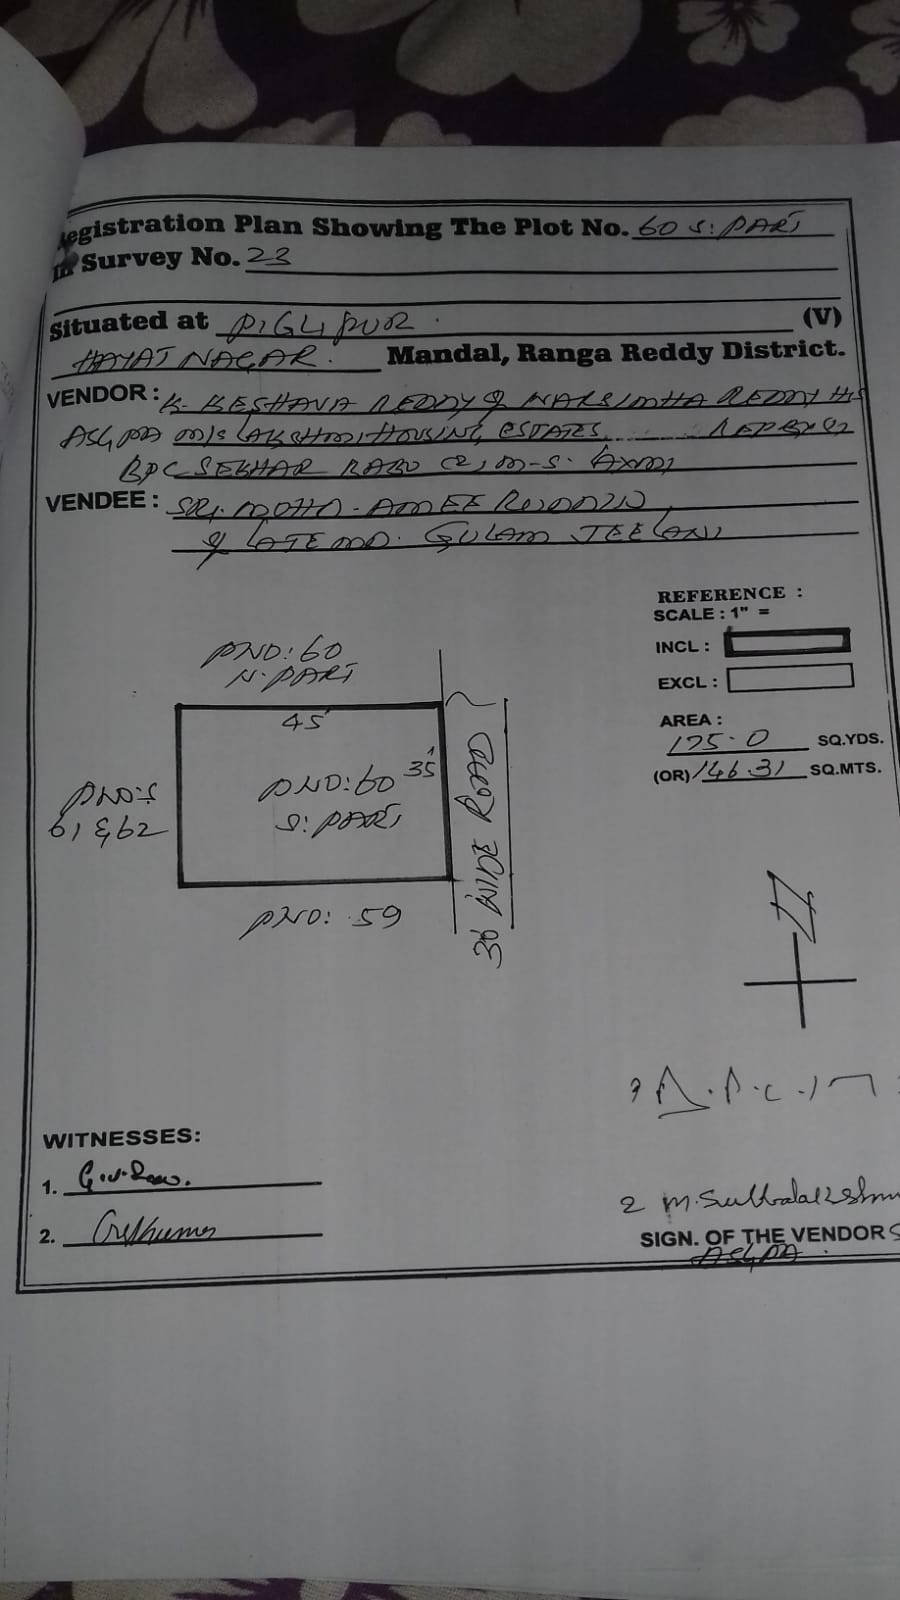 Registration Plan Showing The Plot No. 60 S: PART
In Survey No. 23
Situated at PIGLIPUR. (V)
HAYATNAGAR. Mandal, Ranga Reddy District.
VENDOR: K. KESHAVA REDDY & NARSIMHA REDDY
AS GPA M/S LAKSHMI HOUSING ESTATES
SEKHAR BABU
VENDEE: SRI. MOHD.
LATE MD. GULAM JEELANI
REFERENCE :
SCALE : 1" =
INCL :
EXCL :
AREA :
175.0 SQ.YDS.
(OR) 146.31 SQ.MTS.
PNO: 60
N. PART
45'
35'
PNO: 60
S: PART
PNO:S
61 & 62
PNO: 59
30' WIDE ROAD
N
WITNESSES:
1.
2.
2 M. Subbalakshm
SIGN. OF THE VENDORS
AS GPA.